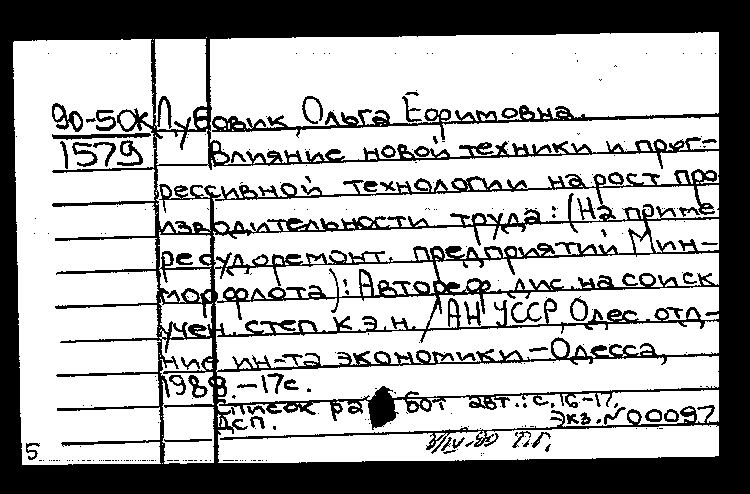 90-50К Дубовик, Ольга Ефимовна.
1579 Влияние новой техники и прог-
рессивной технологии на рост про
изводительности труда: (На приме
ре судоремонт. предприятий Мин-
морфлота): Автореф. дис. на соиск
учен. степ. к.э.н. / АН УССР, Одес. отд-
ние ин-та экономики. - Одесса,
1989. - 17с.
Список работ авт.: с. 16-17.
ДСП. Экз. N 00097
5